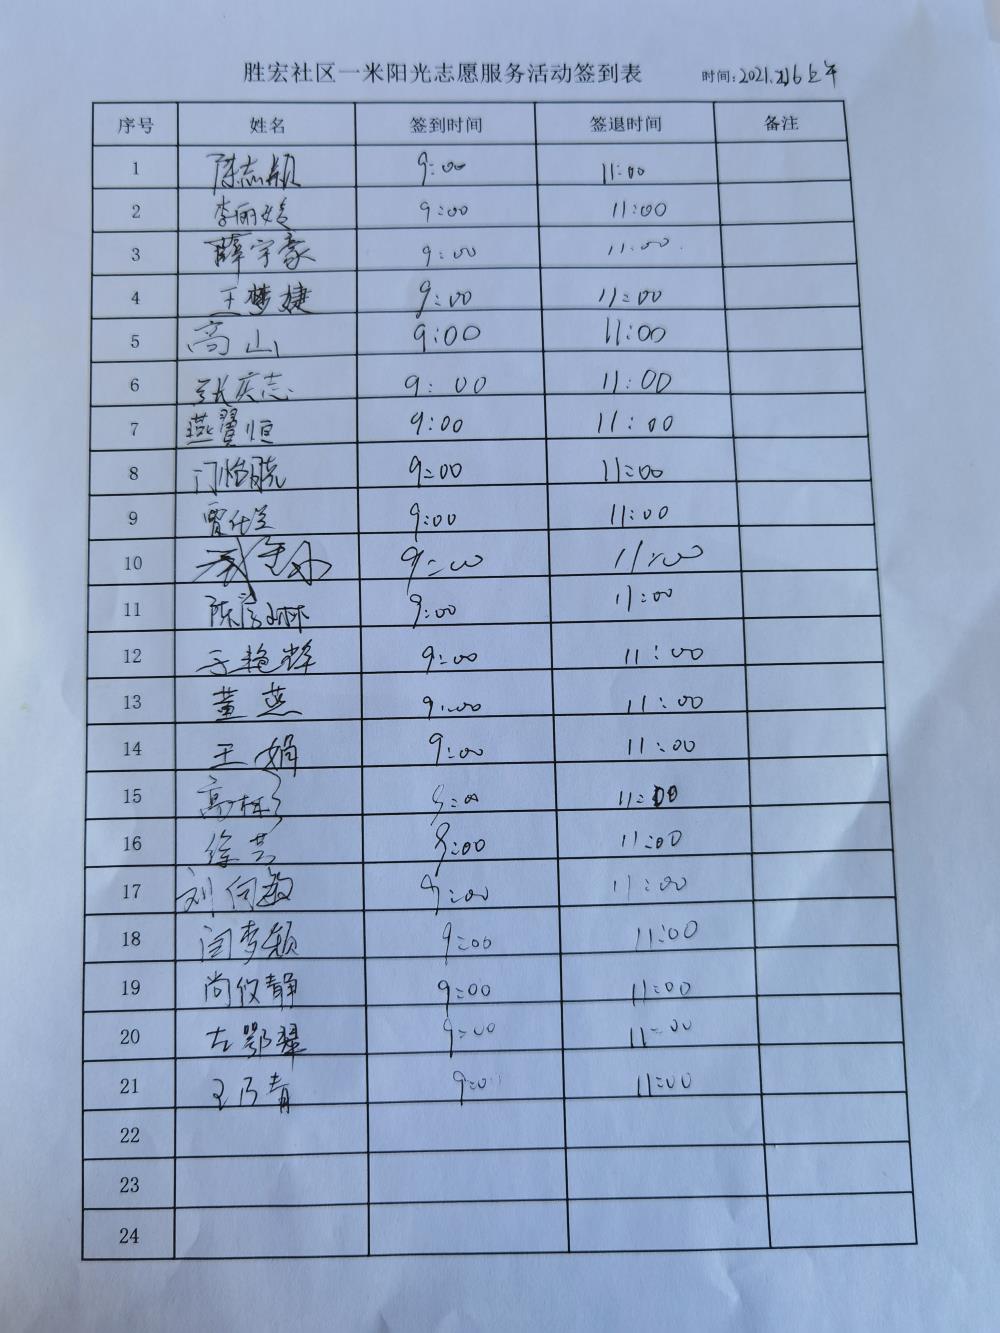 胜宏社区一米阳光志愿服务活动签到表 时间:2021. 上午
序号 姓名 签到时间 签退时间 备注
1 陈志颖 9:00 11:00
2 李丽婷 9:00 11:00
3 薛宇豪 9:00 11:00
4 王梦婕 9:00 11:00
5 高山 9:00 11:00
6 张庆志 9:00 11:00
7 燕翼恒 9:00 11:00
8 门 9:00 11:00
9 贾仕兰 9:00 11:00
10 9:00 11:00
11 陈 琳 9:00 11:00
12 于艳 9:00 11:00
13 董燕 9:00 11:00
14 王娟 9:00 11:00
15 高 9:00 11:00
16 徐芸 9:00 11:00
17 刘向敏 9:00 11:00
18 闫梦颖 9:00 11:00
19 尚仪静 9:00 11:00
20 左鄂翠 9:00 11:00
21 王乃青 9:00 11:00
22
23
24